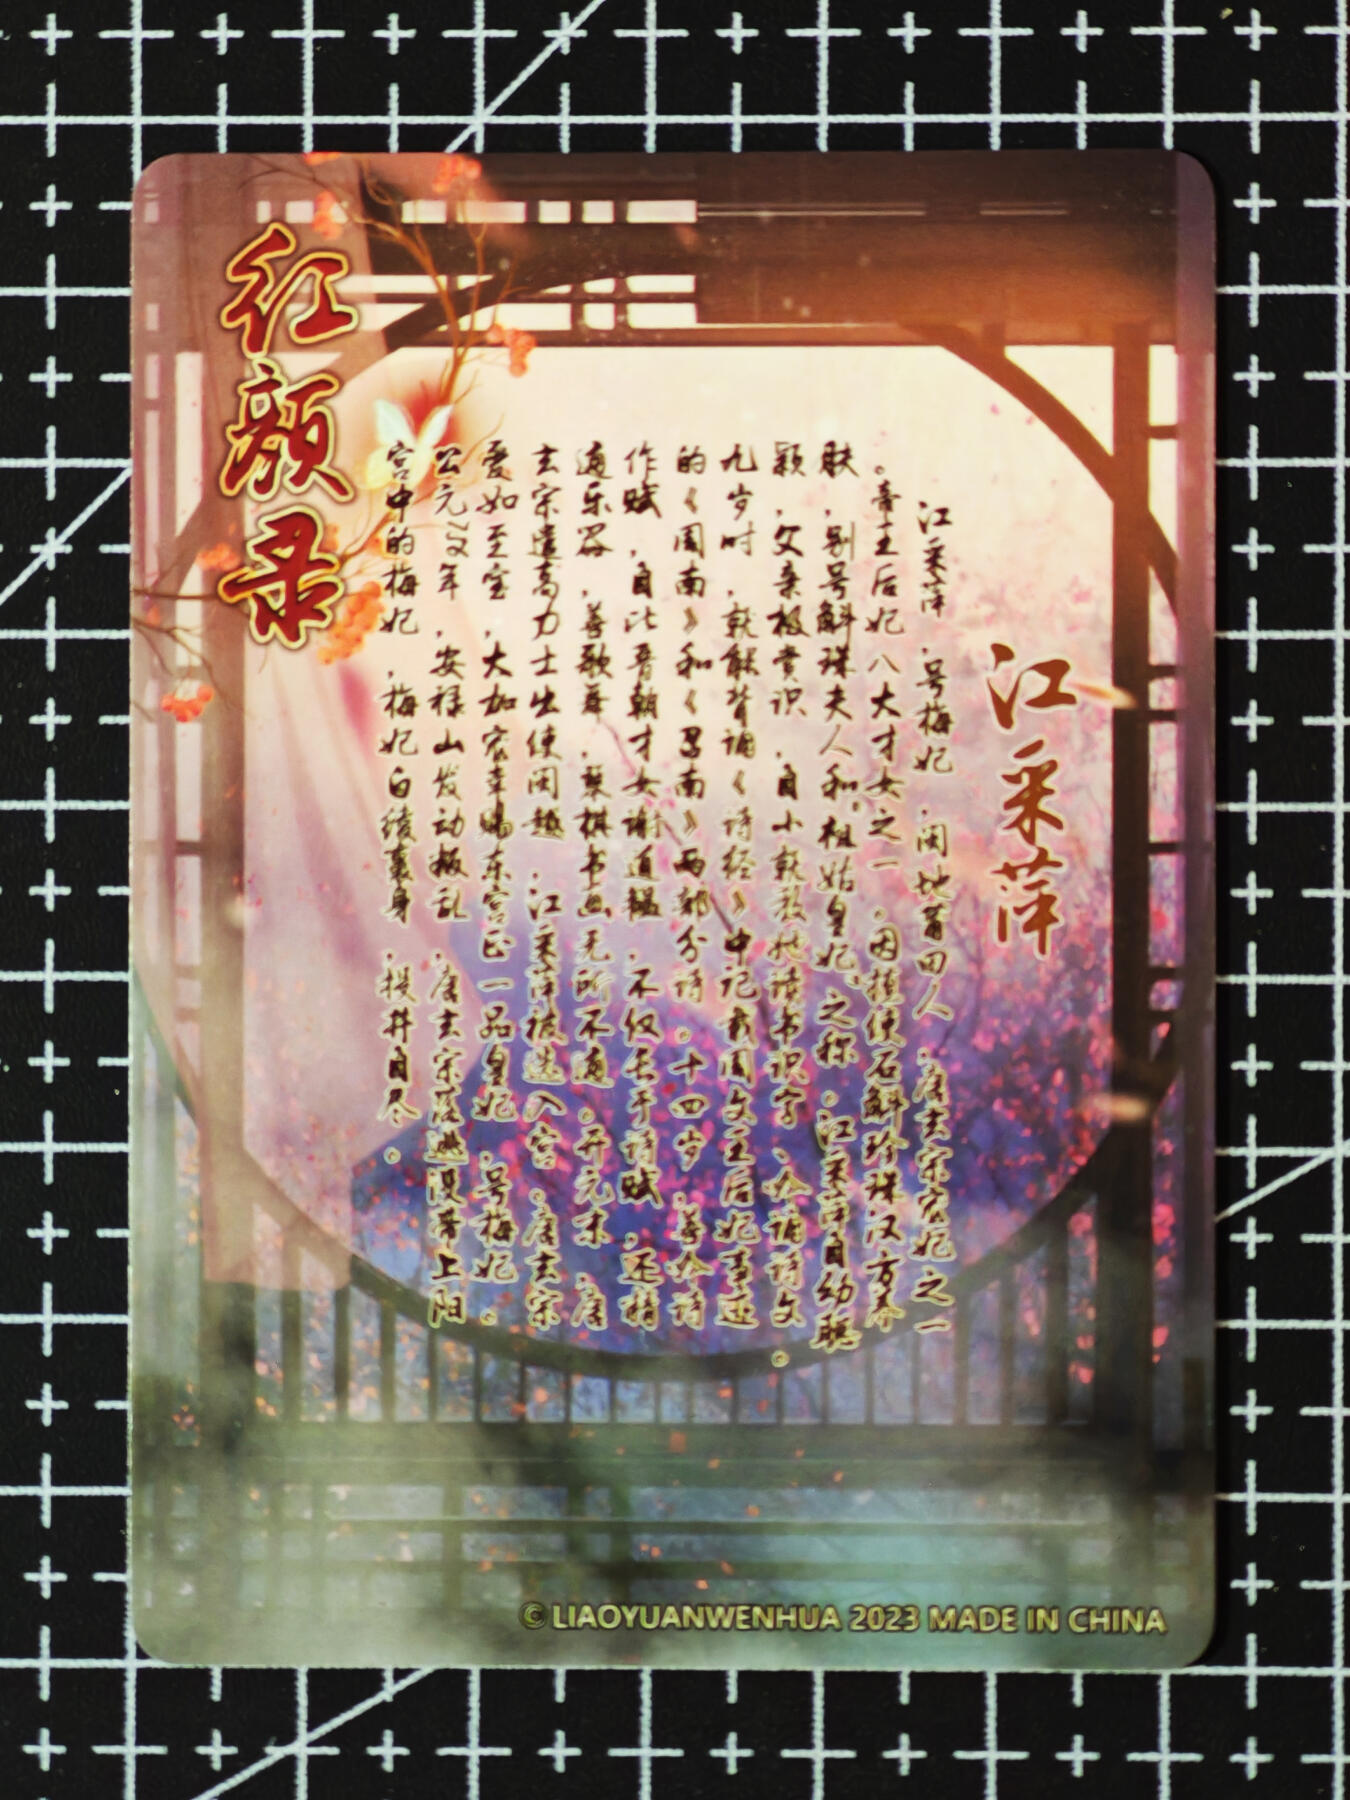 红颜录
江采萍
江采萍,号梅妃,闽地莆田人,唐玄宗宠妃之一
。帝王后妃八大才女之一,因擅使石斛珍珠汉方养
肤,别号斛珠夫人和“祖姑皇妃”之称。江采萍自幼聪
颖,父亲极赏识,自小就教她读书识字、吟诵诗文。
九岁时,就能背诵《诗经》中记载周文王后妃事迹
的《周南》和《召南》两部分诗。十四岁,善吟诗
作赋,自比晋朝才女谢道韫,不仅长于诗赋,还精
通乐器,善歌舞,琴棋书画无所不通。开元末,唐
玄宗遣高力士出使闽越,江采萍被选入宫,唐玄宗
爱如至宝,大加宠幸赐东宫正一品皇妃,号梅妃。
公元年,安禄山发动叛乱,唐玄宗落逃没带上阳
宫中的梅妃,梅妃白绫裹身,投井自尽。
© LIAOYUANWENHUA 2023 MADE IN CHINA